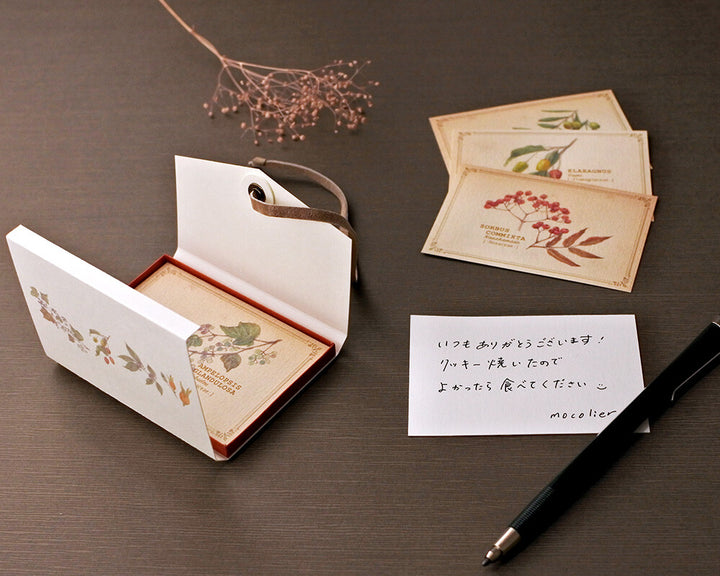 ELAEAGNUS
SORBUS
COMMIXTA
AMPELOPSIS
GLANDULOSA
いつもありがとうございます!
クッキー焼いたので
よかったら食べてください
mocolier